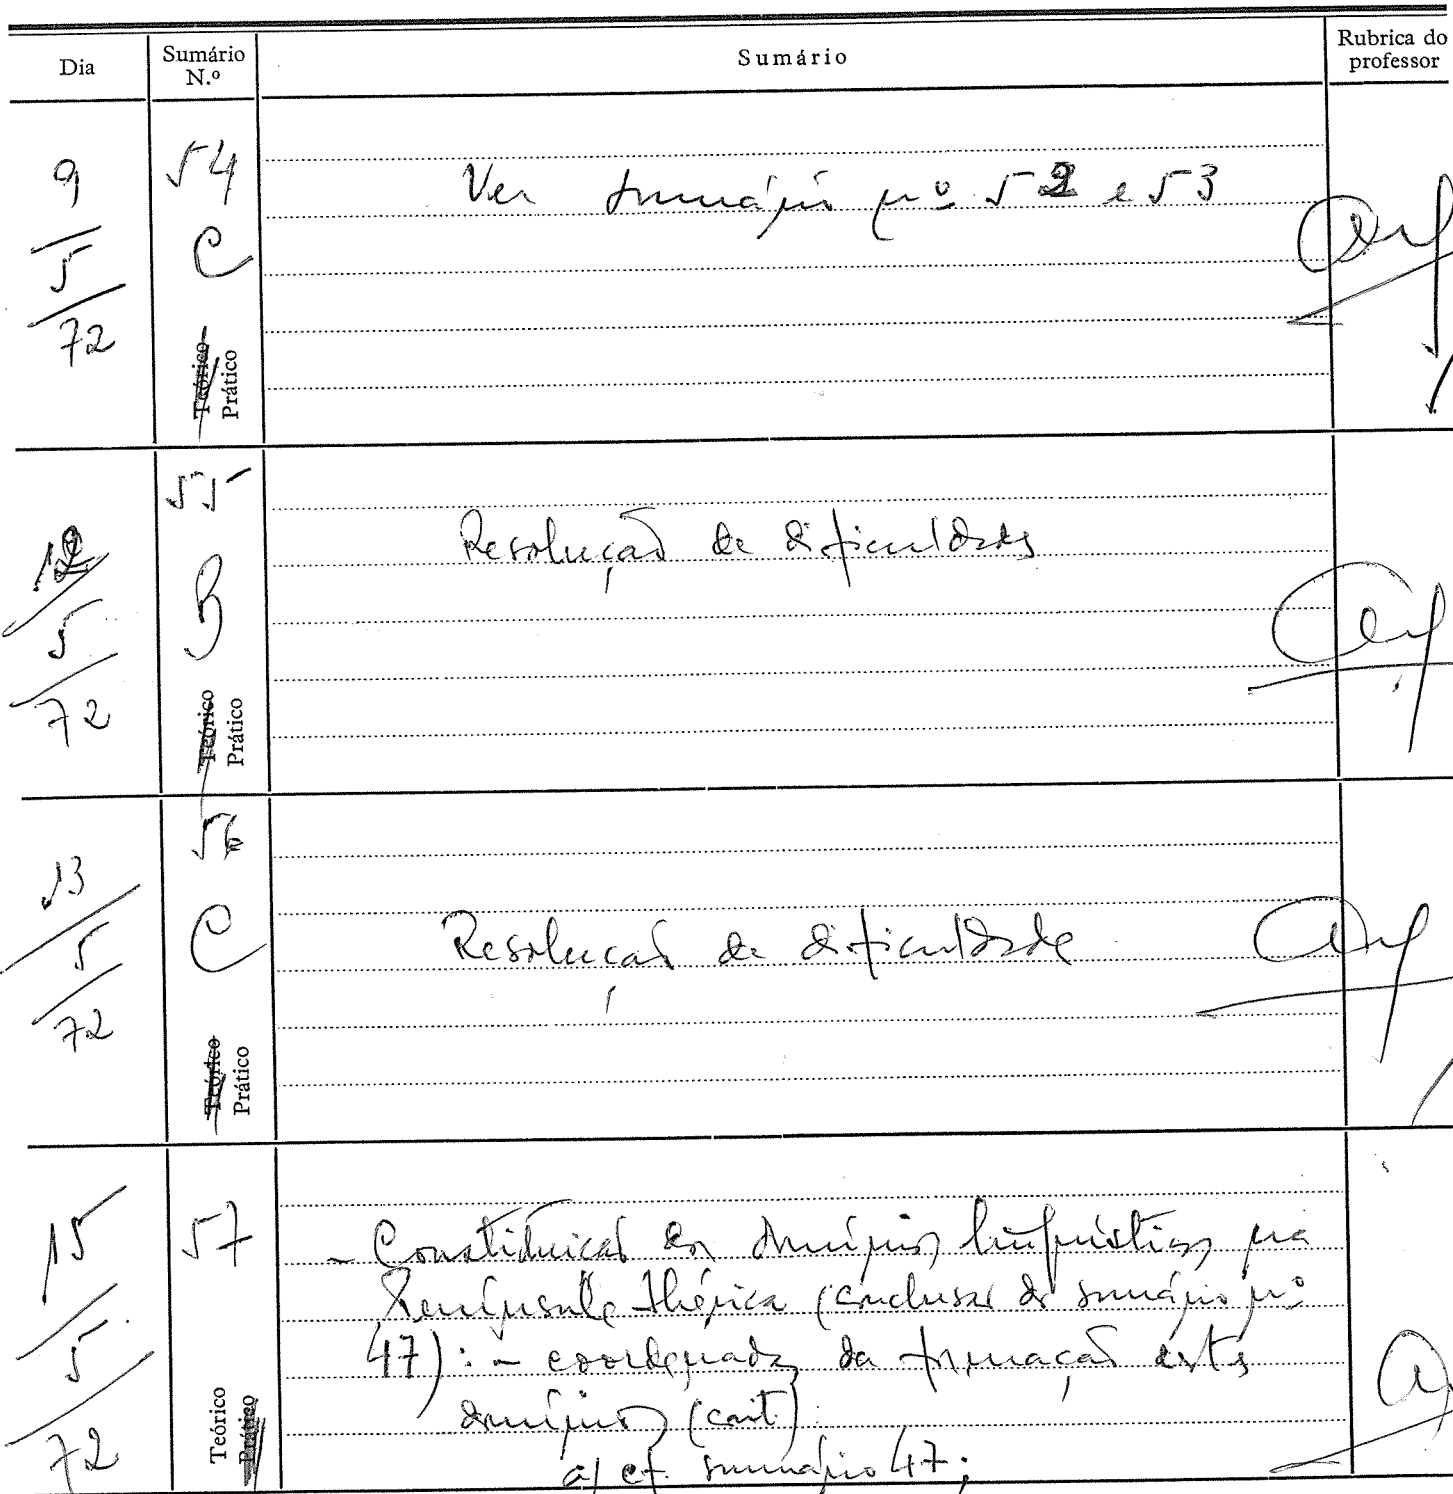 Dia
Sumário N.º
Sumário
Rubrica do professor
9/5/72
54
C
Teórico
Prático
Ver sumário nº 52 e 53
12/5/72
55
B
Teórico
Prático
Resolução de dificuldades
13/5/72
56
C
Teórico
Prático
Resolução de dificuldade
15/5/72
57
Teórico
Prático
- Constituição dos domínios linguísticos na
Península Ibérica (conclusão do sumário nº
47): - coordenadas da formação destes
domínios (cont)
a) cf. sumário 47;